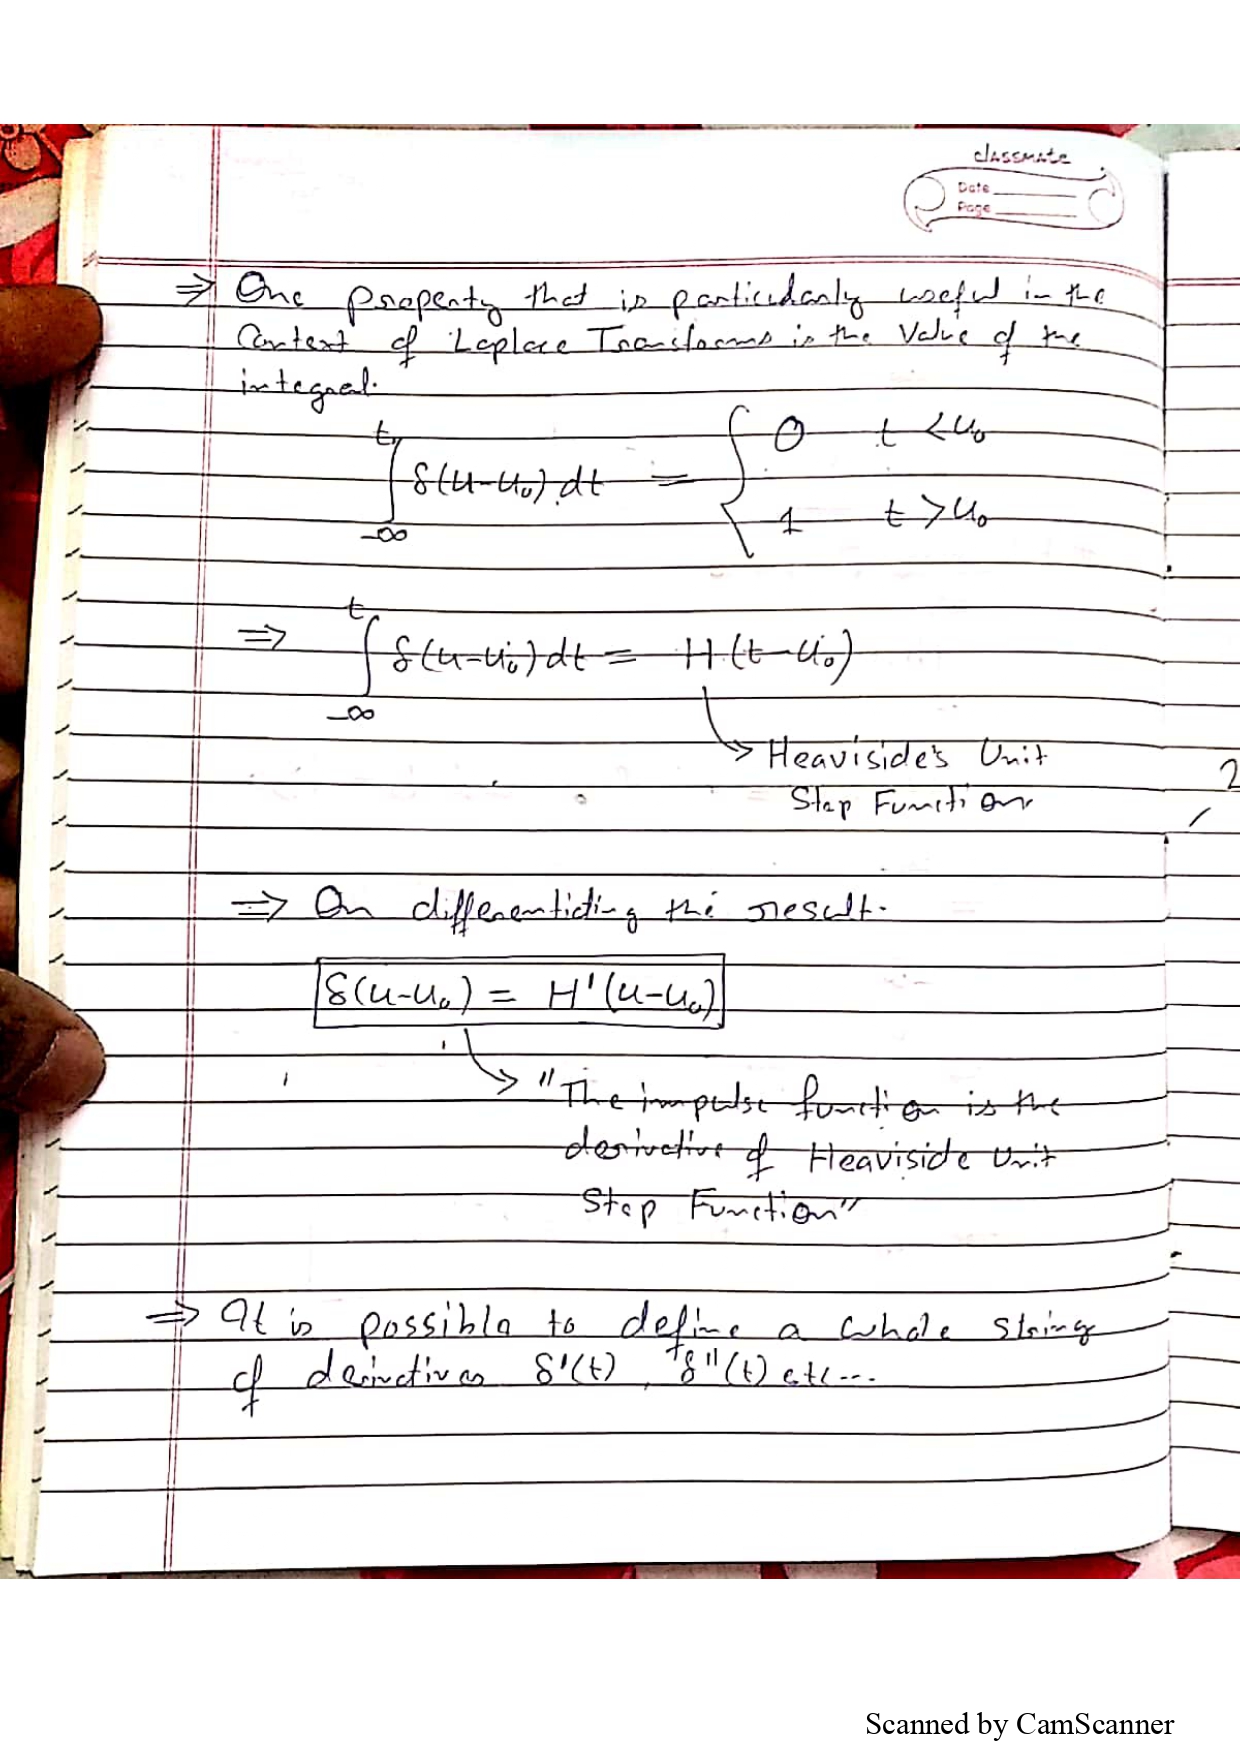 classmate
Date
Page
⇒ One property that is particularly useful in the
Context of Laplace Transforms is the Value of the
integral.
∫_{-∞}^{t} δ(u-u₀) dt = { 0 t < u₀
1 t > u₀
⇒ ∫_{-∞}^{t} δ(u-u₀) dt = H(t-u₀)
→ Heaviside's Unit
Step Function
2
⇒ On differentiating the result.
δ(u-u₀) = H'(u-u₀)
→ "The impulse function is the
derivative of Heaviside Unit
Step Function"
⇒ It is possible to define a whole string
of derivatives δ'(t), δ''(t) etc...
Scanned by CamScanner